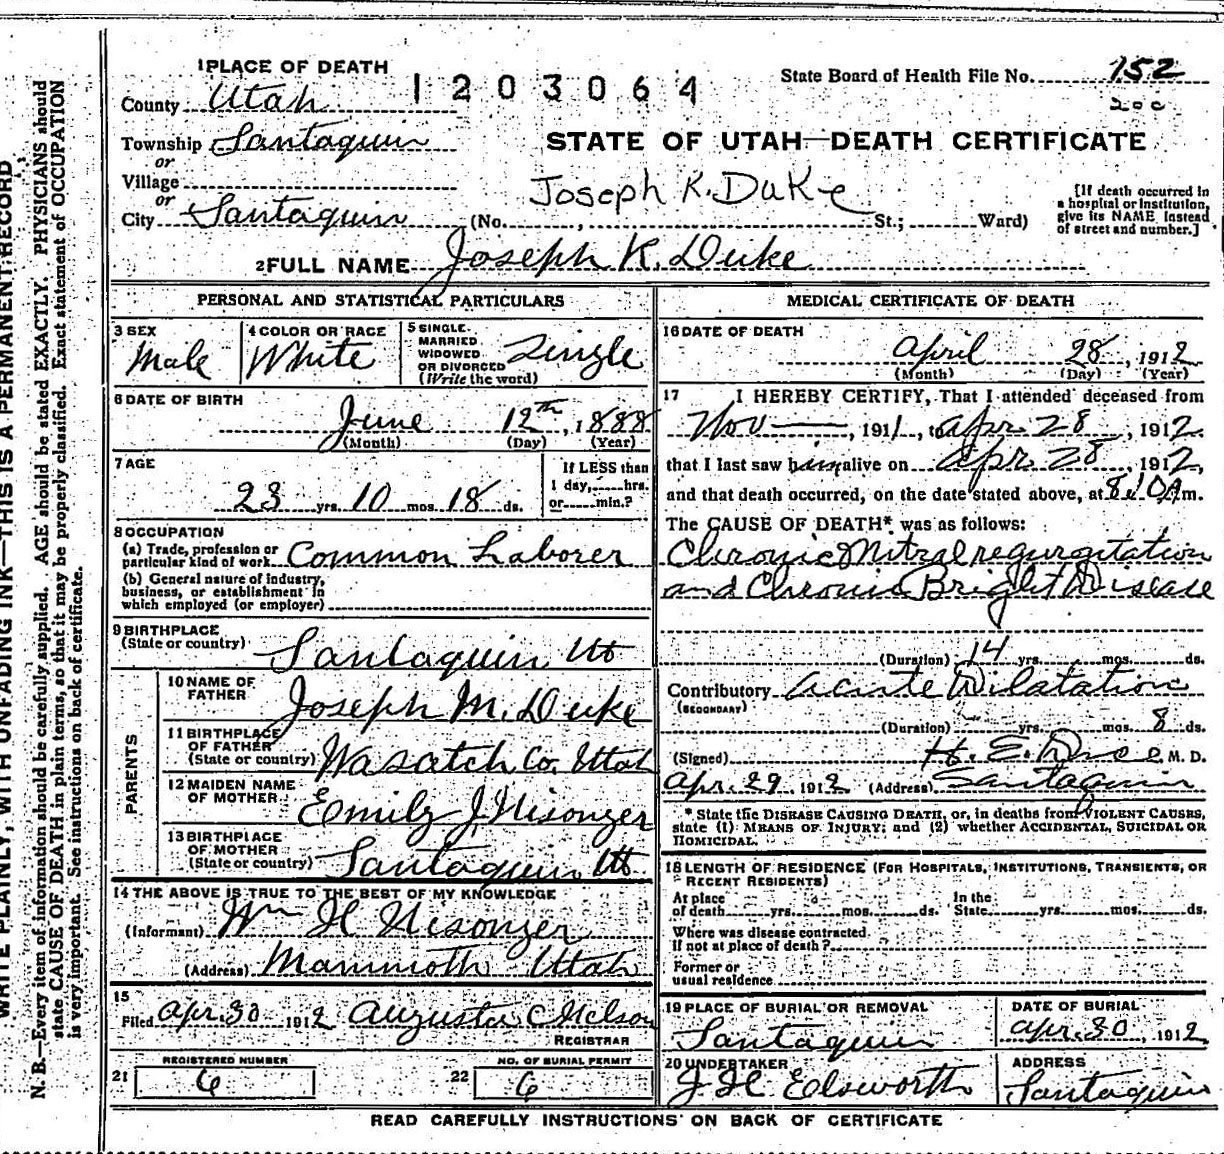 1 PLACE OF DEATH
1203064
State Board of Health File No. 152
200
County Utah
Township Santaquin
or
Village
or
City Santaquin
STATE OF UTAH—DEATH CERTIFICATE
Joseph K. Duke
(No. , St.; Ward)
[If death occurred in
a hospital or institution,
give its NAME instead
of street and number.]
2 FULL NAME Joseph K. Duke
PERSONAL AND STATISTICAL PARTICULARS
3 SEX
Male
4 COLOR OR RACE
White
5 SINGLE,
MARRIED
WIDOWED
OR DIVORCED
(Write the word)
Single
6 DATE OF BIRTH
June 12th, 1888
(Month) (Day) (Year)
7 AGE
23 yrs. 10 mos. 18 ds.
If LESS than
1 day, hrs.
or min.?
8 OCCUPATION
(a) Trade, profession or
particular kind of work Common Laborer
(b) General nature of industry,
business, or establishment in
which employed (or employer)
9 BIRTHPLACE
(State or country)
Santaquin Ut
PARENTS
10 NAME OF
FATHER
Joseph M. Duke
11 BIRTHPLACE
OF FATHER
(State or country) Wasatch Co. Utah
12 MAIDEN NAME
OF MOTHER
Emily J. Nisonger
13 BIRTHPLACE
OF MOTHER
(State or country) Santaquin Ut
14 THE ABOVE IS TRUE TO THE BEST OF MY KNOWLEDGE
(Informant) Wm H Nisonger
(Address) Mammoth Utah
15
Filed Apr. 30 1912 Augusta C Nelson
REGISTRAR
REGISTERED NUMBER
21 6
NO. OF BURIAL PERMIT
22 6
MEDICAL CERTIFICATE OF DEATH
16 DATE OF DEATH
April 28, 1912
(Month) (Day) (Year)
17 I HEREBY CERTIFY, That I attended deceased from
Nov —, 1911, to Apr. 28, 1912.
that I last saw him alive on Apr. 28, 1912,
and that death occurred, on the date stated above, at 8:10 Am.
The CAUSE OF DEATH* was as follows:
Chronic Mitral regurgitation
and Chronic Bright Disease
(Duration) 14 yrs. mos. ds.
Contributory Acute Dilatation
(SECONDARY)
(Duration) yrs. mos. 8 ds.
(Signed) H. E. M. D.
Apr. 29 1912 (Address) Santaquin
* State the DISEASE CAUSING DEATH, or, in deaths from VIOLENT CAUSES,
state (1) MEANS OF INJURY; and (2) whether ACCIDENTAL, SUICIDAL OR
HOMICIDAL.
18 LENGTH OF RESIDENCE (FOR HOSPITALS, INSTITUTIONS, TRANSIENTS, OR
RECENT RESIDENTS)
At place
of death yrs. mos. ds.
In the
State yrs. mos. ds.
Where was disease contracted.
If not at place of death?
Former or
usual residence
19 PLACE OF BURIAL OR REMOVAL
Santaquin
DATE OF BURIAL
Apr. 30, 1912
20 UNDERTAKER
J H Elsworth
ADDRESS
Santaquin
READ CAREFULLY INSTRUCTIONS ON BACK OF CERTIFICATE
WRITE PLAINLY, WITH UNFADING INK—THIS IS A PERMANENT RECORD
N. B.—Every item of information should be carefully supplied. AGE should be stated EXACTLY. PHYSICIANS should
state CAUSE OF DEATH in plain terms, so that it may be properly classified. Exact statement of OCCUPATION
is very important. See instructions on back of certificate.